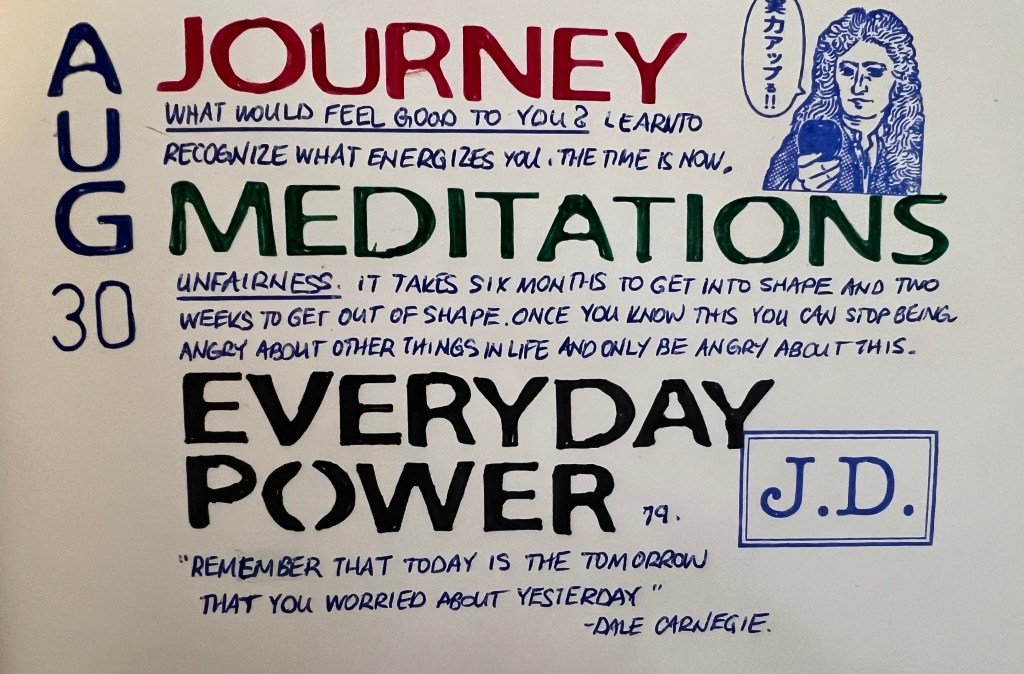 AUG
30
JOURNEY
WHAT WOULD FEEL GOOD TO YOU? LEARN TO
RECOGNIZE WHAT ENERGIZES YOU. THE TIME IS NOW.
実力アップる!!
MEDITATIONS
UNFAIRNESS. IT TAKES SIX MONTHS TO GET INTO SHAPE AND TWO
WEEKS TO GET OUT OF SHAPE. ONCE YOU KNOW THIS YOU CAN STOP BEING
ANGRY ABOUT OTHER THINGS IN LIFE AND ONLY BE ANGRY ABOUT THIS.
EVERYDAY
POWER 79.
J.D.
"REMEMBER THAT TODAY IS THE TOMORROW
THAT YOU WORRIED ABOUT YESTERDAY"
-DALE CARNEGIE.